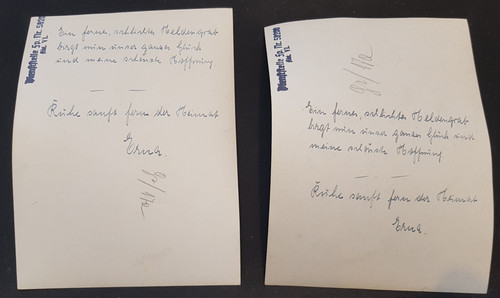 Dienststelle Fp. Nr. 59211
Abt. VI.
Ein ferner, schlichter Heldengrab
birgt nun unser ganzes Glück
und meine schönste Hoffnung
Ruhe sanft fern der Heimat
Erna.
Dienststelle Fp. Nr. 59211
Abt. VI.
Ein ferner, schlichter Heldengrab
birgt nun unser ganzes Glück und
meine schönste Hoffnung
Ruhe sanft fern der Heimat
Erna.